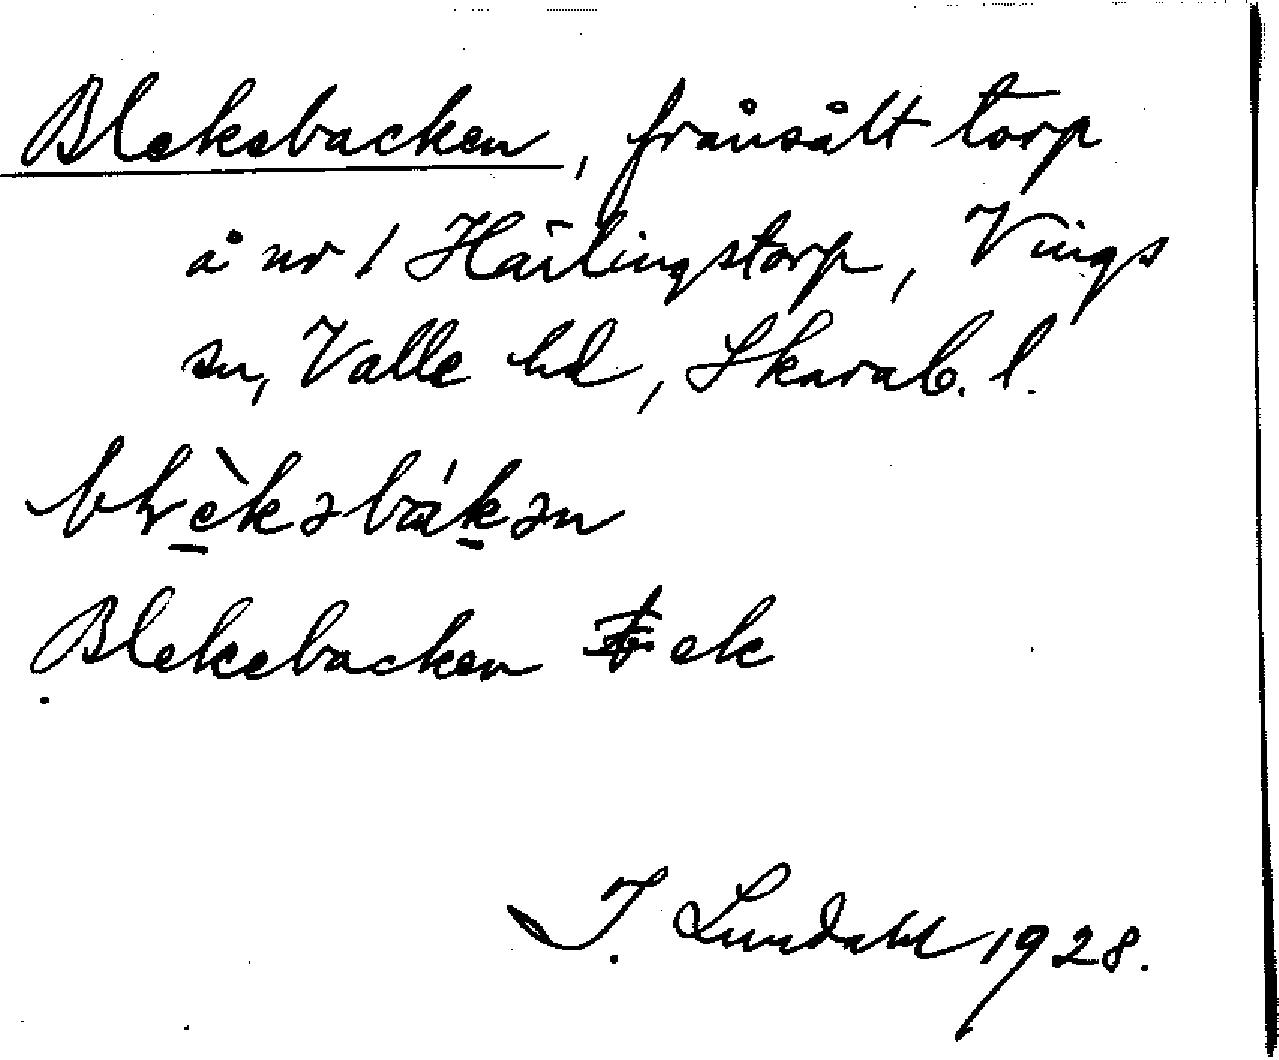 Blekebacken, frånsålt torp
å nr 1 Härlingstorp, Vings
sn, Valle hd, Skarab. l.
Blekebacken ek
I. Lundahl 1928.